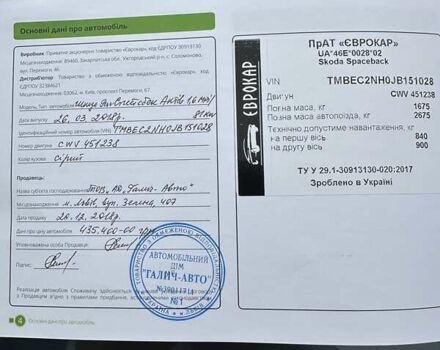 Основні дані про автомобіль
Виробник: Приватне акціонерне товариство «Єврокар», код ЄДРПОУ 30913130
Місцезнаходження: 89460, Закарпатська обл., Ужгородський р-н, с. Соломоново,
вул. Перемоги, 46
Дистриб'ютор: Товариство з обмеженою відповідальністю «Єврокар», код ЄДРПОУ 32384621
Місцезнаходження: 03062, м. Київ, проспект Перемоги, 67
Модель, тип автомобіля
1,6
Дата випуску 26.03.2018р. 81кW
Ідентифікаційний номер автомобіля (VIN) TMBEC2NH0JB151028
Номер двигуна CWV 451238
Колір кузова сірий
Продавець:
Назва суб'єкта господарювання ТОВ „АД „Галич-Авто"
Місцезнаходження м. Львів, вул. Зелена, 407
Дата продажу 20.12.2018р.
Ціна 435.400-00 грн
Уповноважена особа Продавця:
Підпис:
АВТОМОБІЛЬНИЙ
ДІМ
"ГАЛИЧ-АВТО"
№1
4 Основні дані про автомобіль
ЄВРОКАР
ПрАТ «ЄВРОКАР»
UA*46E*0028*02
Skoda Spaceback
VIN TMBEC2NH0JB151028
Двигун CWV 451238
Повна маса, кг 1675
Повна маса автопоїзда, кг 2675
Технічно допустиме навантаження, кг
на першу вісь 840
на другу вісь 900
ТУ У 29.1-30913130-020:2017
Зроблено в Україні